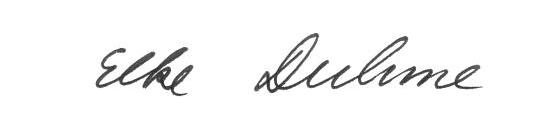 Elke Duhme